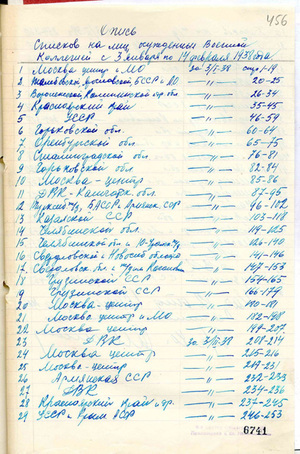 456
Опись
Списков на лиц осужденных Военной
Коллегией с 3 января по 14 февраля 1938 года
1 Москва центр и МО за 3/I-38 стр. 1-19
2 БССР и —"— 20-25
3 Калининская обл —"— 26-34
4 Красноярский край —"— 35-45
5 УССР —"— 46-59
6 Горьковской обл. —"— 60-64
7 Оренбургской обл —"— 65-75
8 Сталинградской обл —"— 76-81
9 Горьковской обл. —"— 82-84
10 Москва - центр —"— 85-86
11 ДВК - Камчатк. обл. —"— 87-95
12 БАССР —"— 96-102
13 Казахской ССР —"— 103-118
14 Челябинской обл —"— 119-125
15 Челябинской обл и —"— 126-140
16 Свердловской и —"— 141-146
17 Свердловск. обл. —"— 147-153
18 Грузинской ССР —"— 154-165
19 Грузинской ССР —"— 166-179
20 Москва - центр —"— 180-181
21 Москва центр и МО —"— 182-198
22 Москва центр —"— 199-207
23 ДВК за 3/II-38 208-214
24 Москва центр —"— 215-216
25 Москва - центр —"— 217-231
26 Армянская ССР —"— 232-233
27 ДВК —"— 234-236
28 Красноярский край и др. —"— 237-245
29 УССР и Крым АССР —"— 246-253
6741